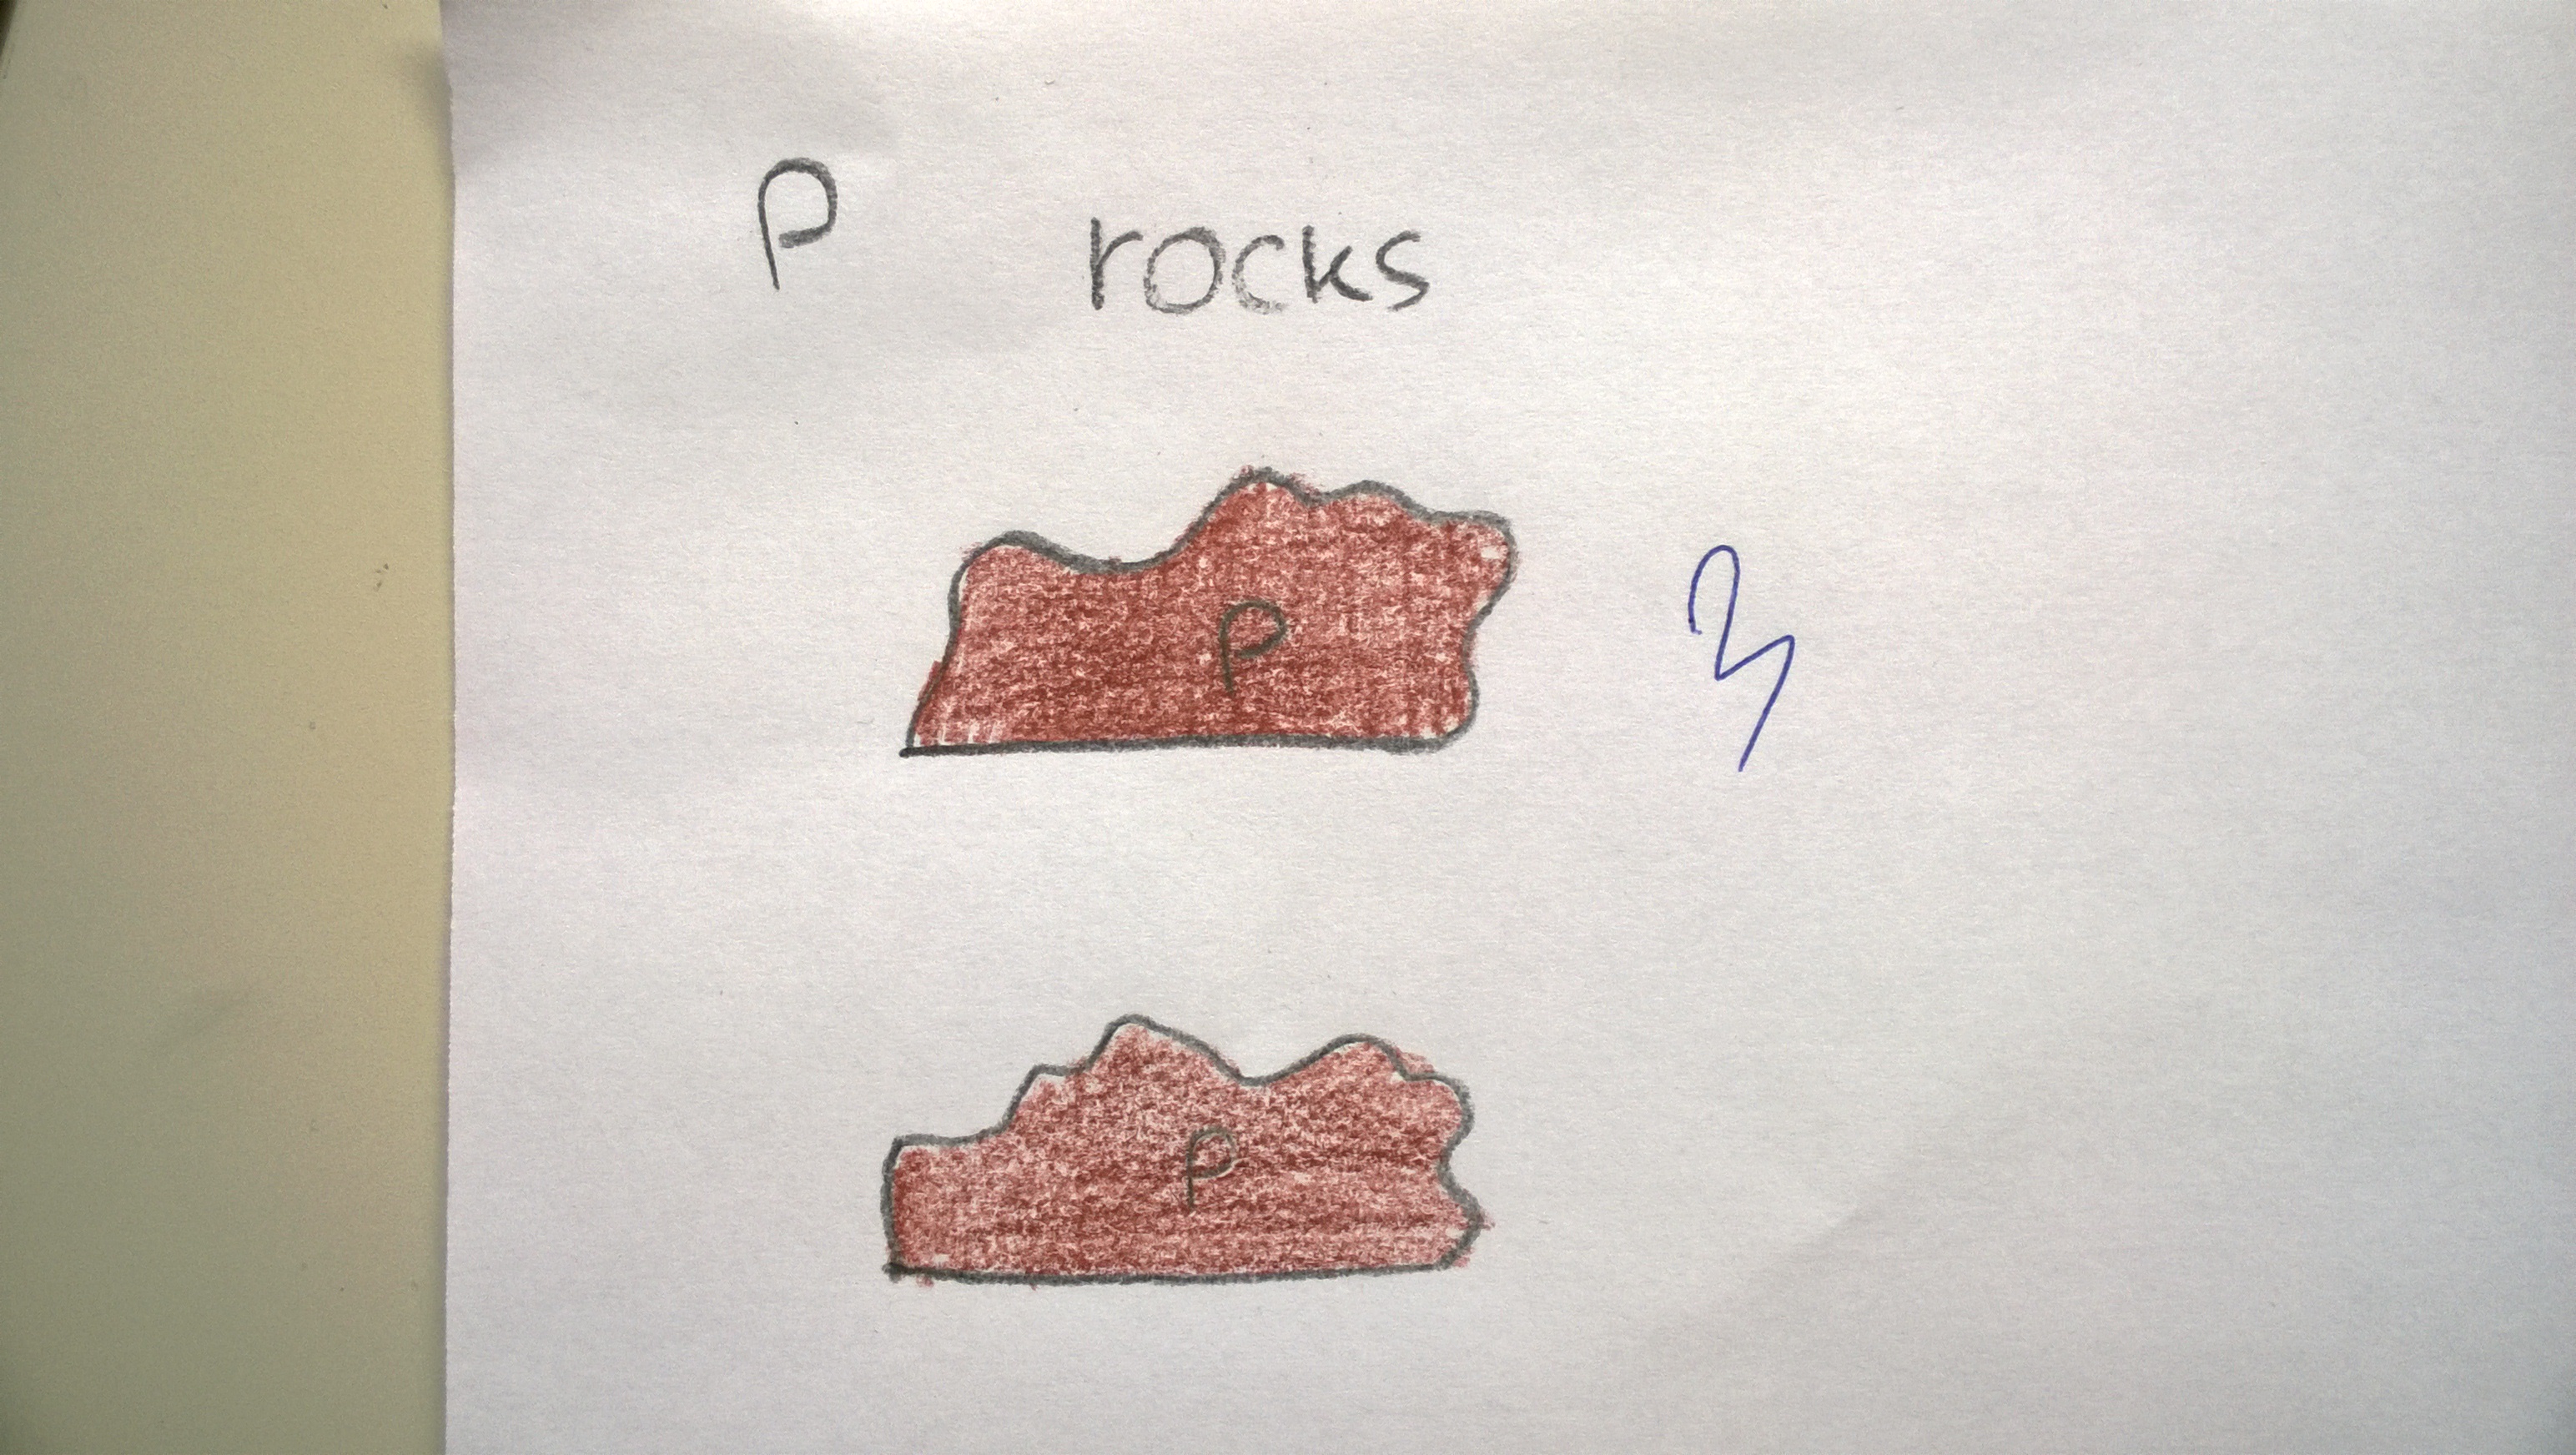 P rocks
P
P